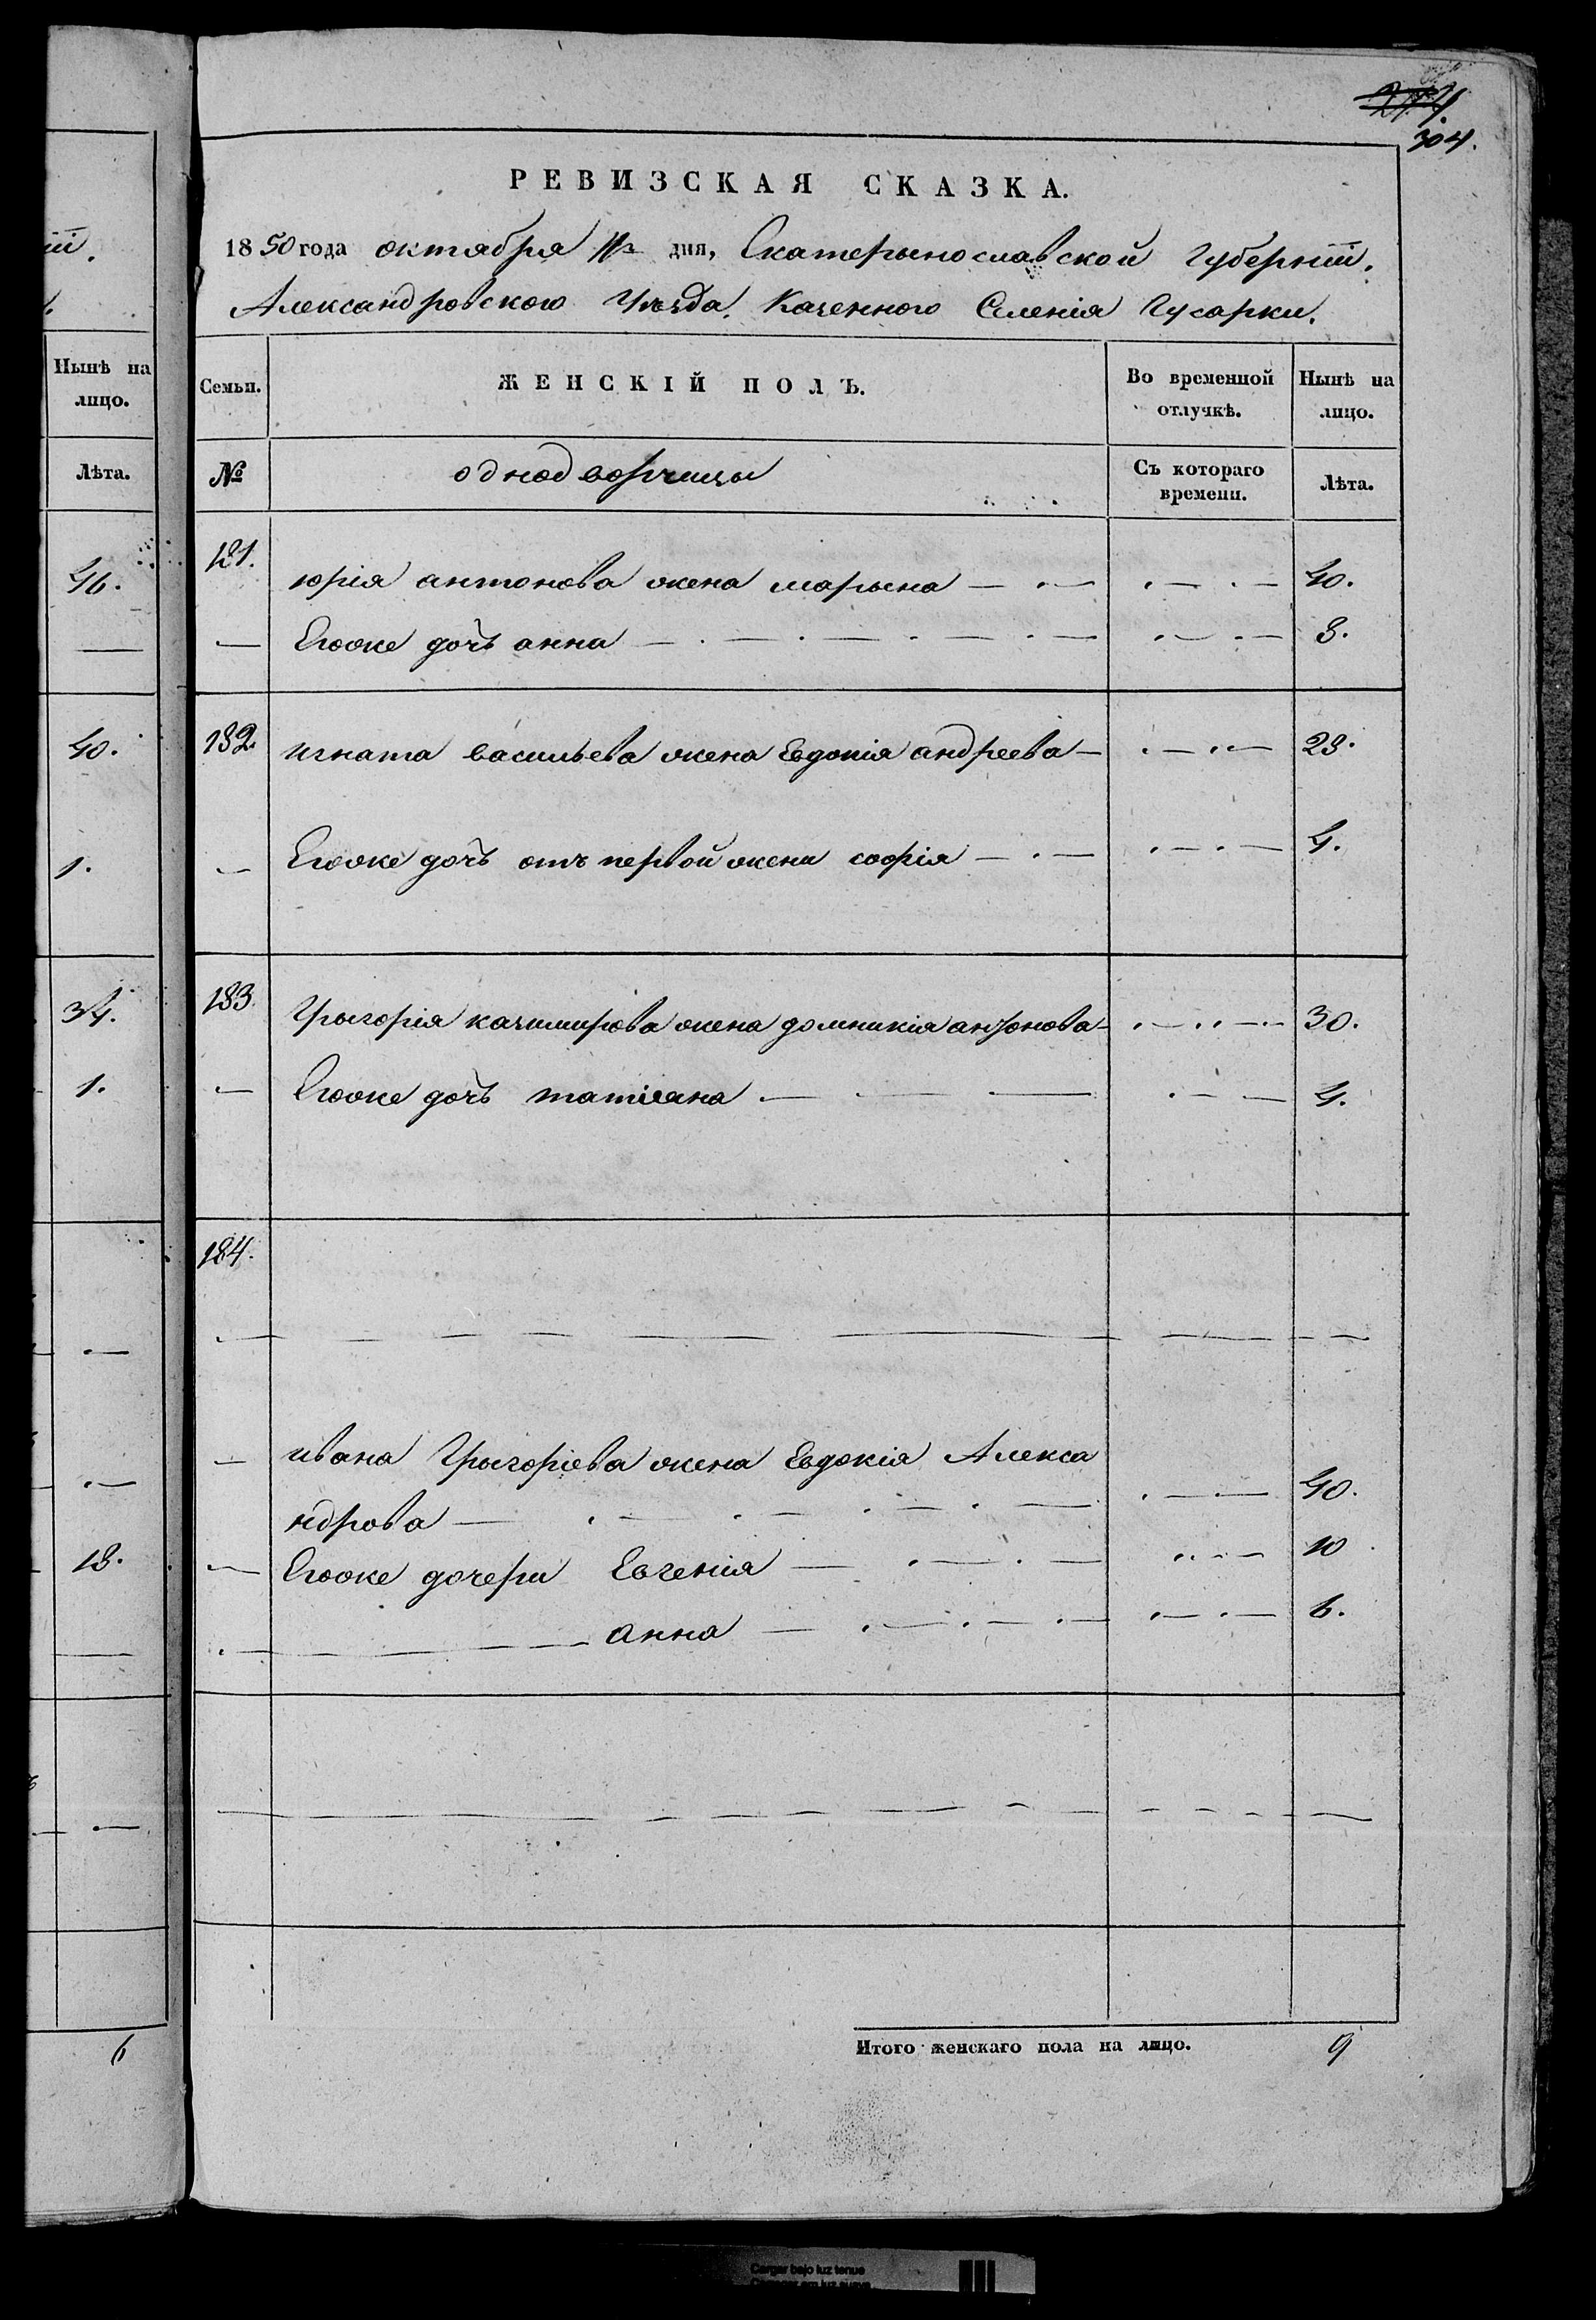 304.
РЕВИЗСКАЯ СКАЗКА.
1850 года октября дня, Екатерынославской Губерніи.
Александровского Уѣзда. Казенного Селенія Гусарки.
Нынѣ на лицо.
Лѣта.
46.
40.
1.
34.
1.
18.
6
Семьи. ЖЕНСКІЙ ПОЛЪ. Во временной отлучкѣ. Нынѣ на лицо.
№ однодворчицы Съ котораго времени. Лѣта.
181. юрія антонова жена марына 40.
Егоже дочь анна 8.
182. игната васильева жена Евдокія андреева 28.
Егоже дочь отъ первой жени софія 4.
183. Грыгорія казимирова жена домникія антонова 30.
Егоже дочь татіяна 4.
184.
ивана Грыгоріева жена Евдокія Алекса
ндрова 40.
Егоже дочери Евгенія 10
анна 6.
Итого женскаго пола на лицо. 9
Cargar bajo luz tenue